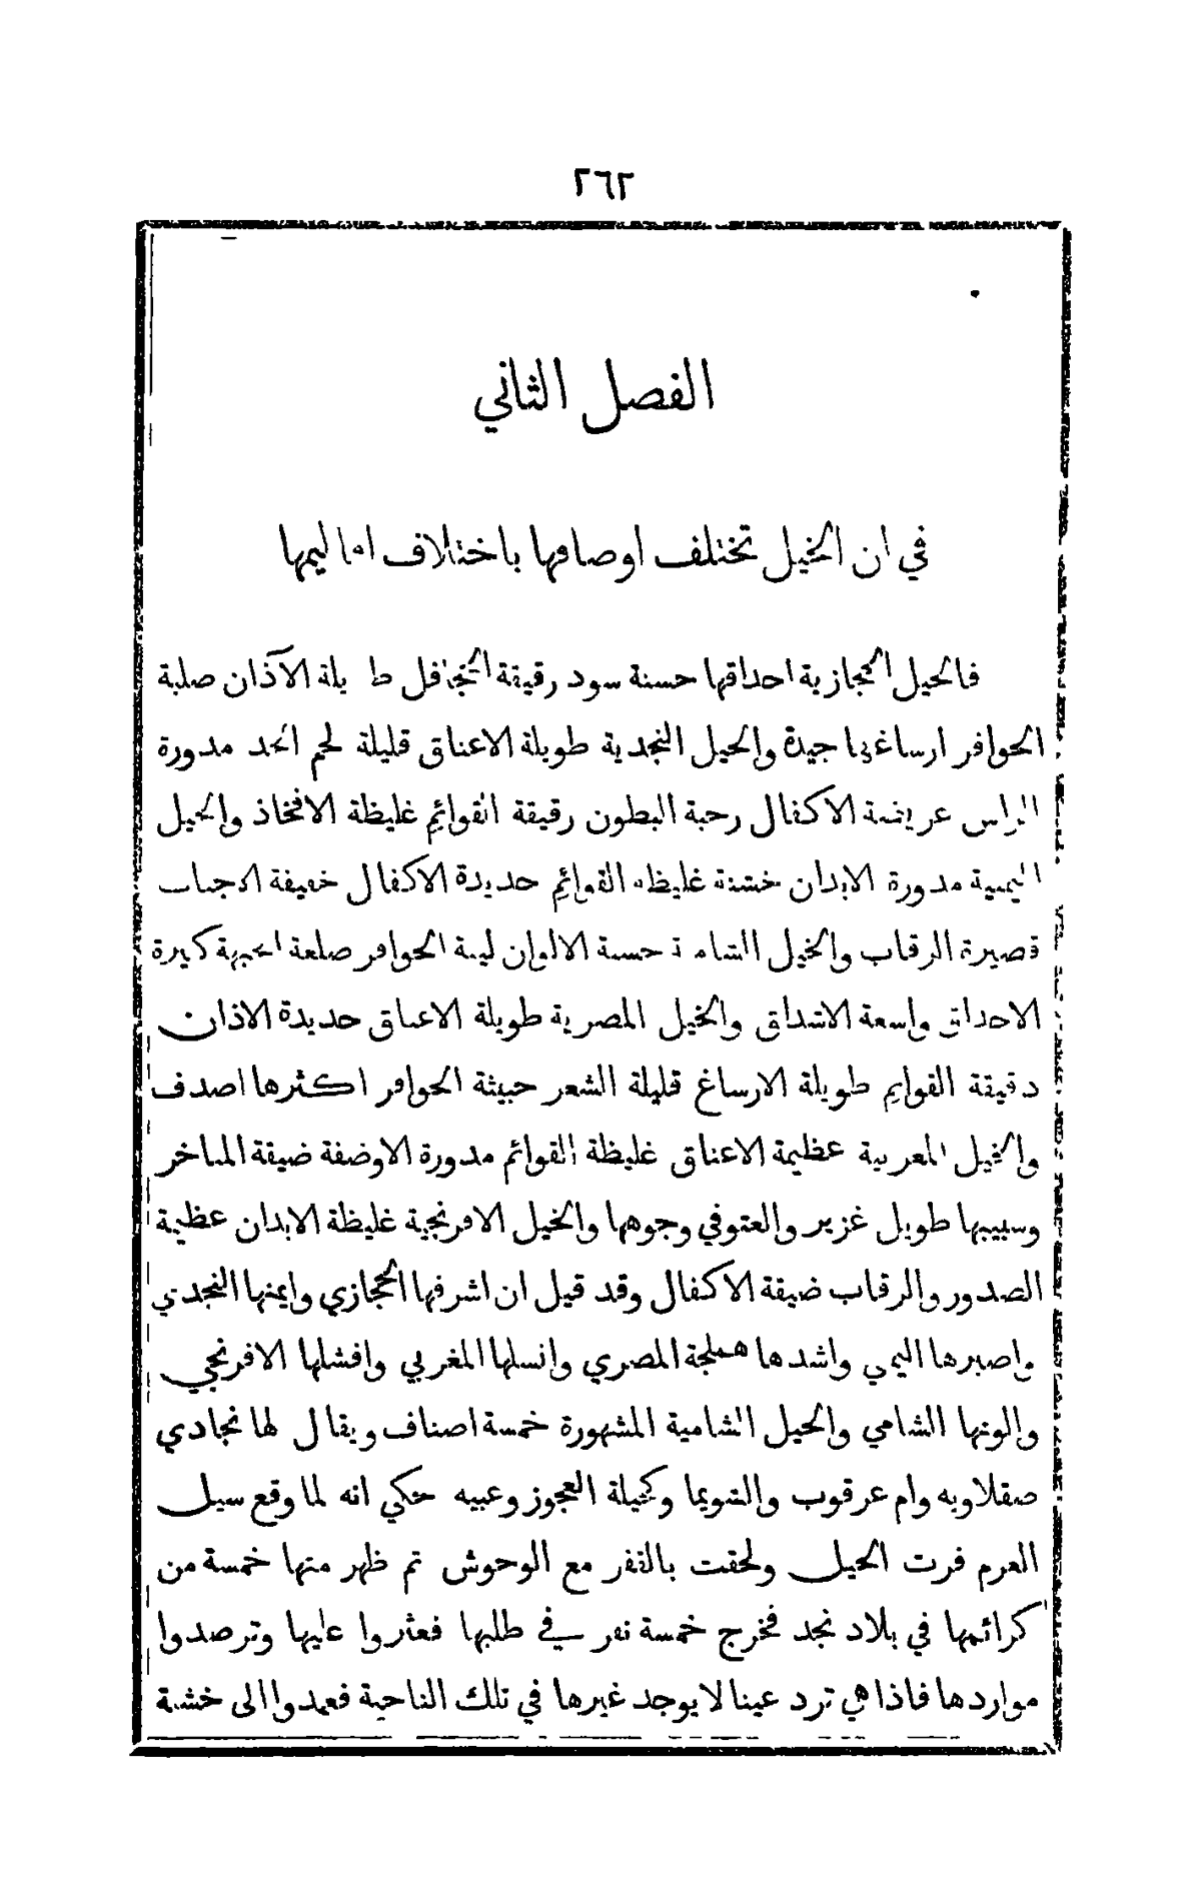 ٢٦٢
الفصل الثاني
في ان الخيل تختلف اوصافها باختلاف اقاليمها
فالخيل الحجازية احداقها حسنة سود رقيقة الجحافل طويلة الآذان صلبة
الحوافر ارساغها جيدة والخيل النجدية طويلة الاعناق قليلة لحم الخد مدورة
الراس عريضة الاكفال رحبة البطون رقيقة القوائم غليظة الافخاذ والخيل
اليمنية مدورة الابدان خشنة غليظة القوائم حديدة الاكفال خفيفة الاجناب
قصيرة الرقاب والخيل الشامية حسنة الالوان لينة الحوافر صلعة الجبهة كبيرة
الاحداق واسعة الاشداق والخيل المصرية طويلة الاعناق حديدة الاذان
دقيقة القوايم طويلة الارساغ قليلة الشعر خبيثة الحوافر اكثرها اصدف
والخيل المغربية عظيمة الاعناق غليظة القوائم مدورة الاوضفة ضيقة المناخر
وسبيبها طويل غزير والعتوفي وجوهها والخيل الافرنجية غليظة الابدان عظيمة
الصدور والرقاب ضيقة الاكفال وقد قيل ان اشرفها الحجازي وايمنها النجدي
واصبرها اليمني واشدها هملجة المصري وانسلها المغربي وافشلها الافرنجي
والونها الشامي والخيل الشامية المشهورة خمسة اصناف ويقال لها نجادي
صقلاويه وام عرقوب والشويما وكحيلة العجوز وعبيه حكي انه لما وقع سيل
العرم فرت الخيل ولحقت بالنفر مع الوحوش ثم ظهر منها خمسة من
كرائمها في بلاد نجد فخرج خمسة نفر في طلبها فعثروا عليها وترصدوا
مواردها فاذا هي ترد عينا لا يوجد غيرها في تلك الناحية فعمدوا الى خشبة